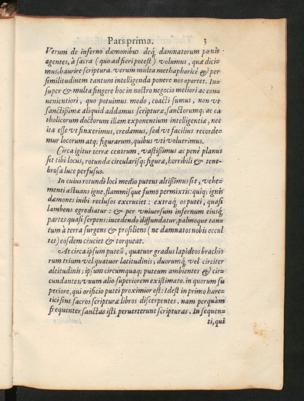 Pars prima. 3
Verum de inferno dæmonibus deq; damnatorum pœnis
agentes, à sacra (quia ad fieri potest) volumus, quæ dicio
mus haurire scriptura. verum multa methaphoricè & per
similitudinem tantum intelligenda ponere nos oportet. In
super & multa fingere hoc in nostro negocio meliori ac con
uenientiori, quo potuimus modo, coacti sumus, non vt
sanctissimæ aliquid addamus scripturæ, sanctorumq; ac ca
tholicorum doctorum illam exponentium intelligentiæ, nec
ita esse vt finxerimus, credamus, sed vt facilius recorde-
mur locorum atq; figurarum, quibus vti voluerimus.
Circa igitur terræ centrum, vastissimus ac penè planus
sit tibi locus, rotunda circularisq; figura, horribili & tene-
brosa luce perfusus.
In cuius rotundi loci medio puteus altissimus sit, vehe-
menti æstuans igne, flammisque fumo permixtis: quiq; ignis
dæmones inibi reclusos excruciet: extraq; os putei, quasi
lambens egrediatur: & per vniuersum infernum eiusq;
partes quasi serpens: incedendo diffundatur: palmoque tan
tum à terra surgens & prosiliens (ne damnatorum nobis occul
tes) eosdem cruciet & torqueat.
At circa ipsum puteū, quatuor gradus lapideos brachi
orum trium vel quatuor latitudinis, duorumq; vel circiter
altitudinis; ipsum circumquaq; puteum ambientes & cir
cundantes, vnum alio superiorem existimato. in quorum su
periore, qui orificio putei proximior est: idest in primo hære-
tici sinc sacros scripturæ libros discerpentes, nam perquàm
frequenter sanctas isti peruerterunt scripturas. In sequen
ti, qui